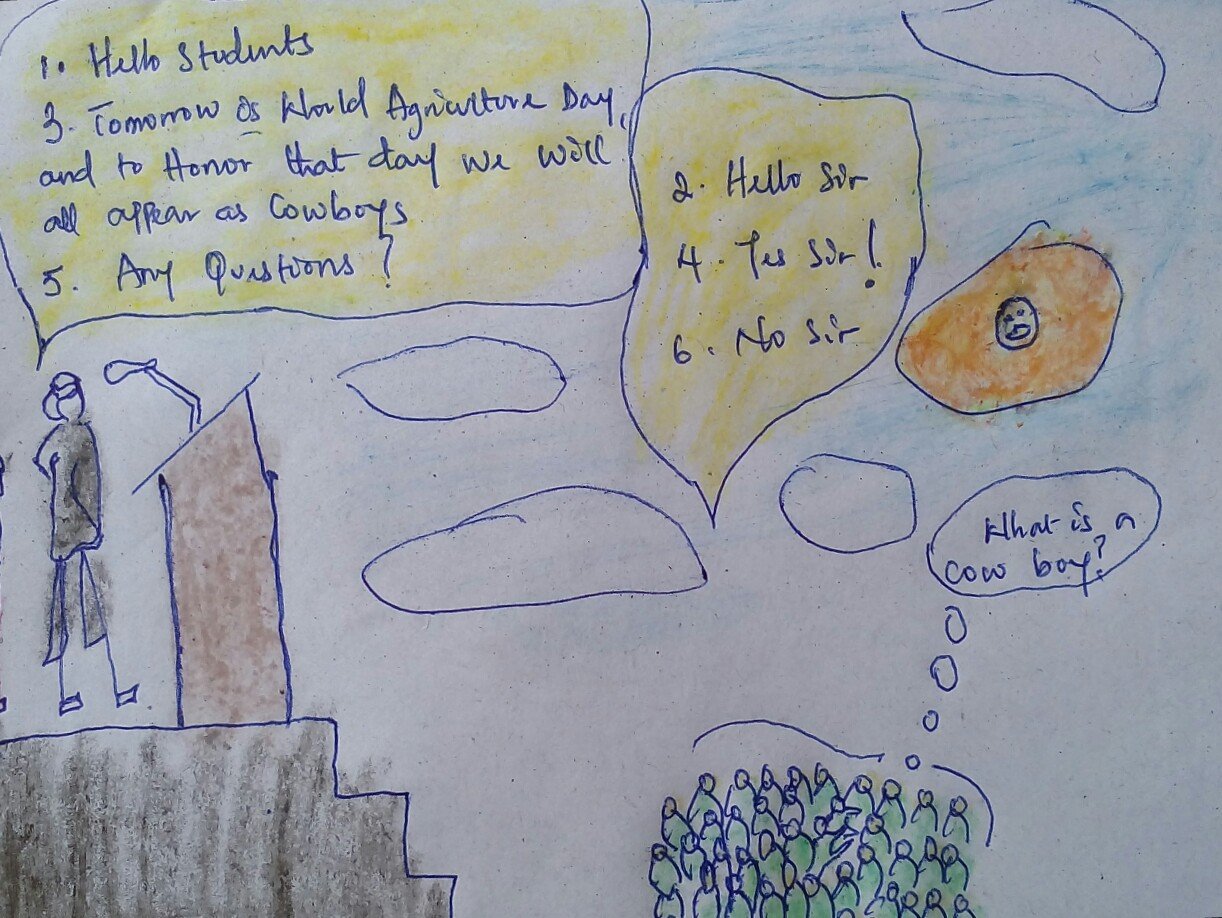 1. Hello Students
3. Tomorrow is World Agriculture Day,
and to Honor that day we will
all appear as Cowboys
5. Any Questions?
2. Hello Sir
4. Yes Sir!
6. No Sir
What is a
cow boy?